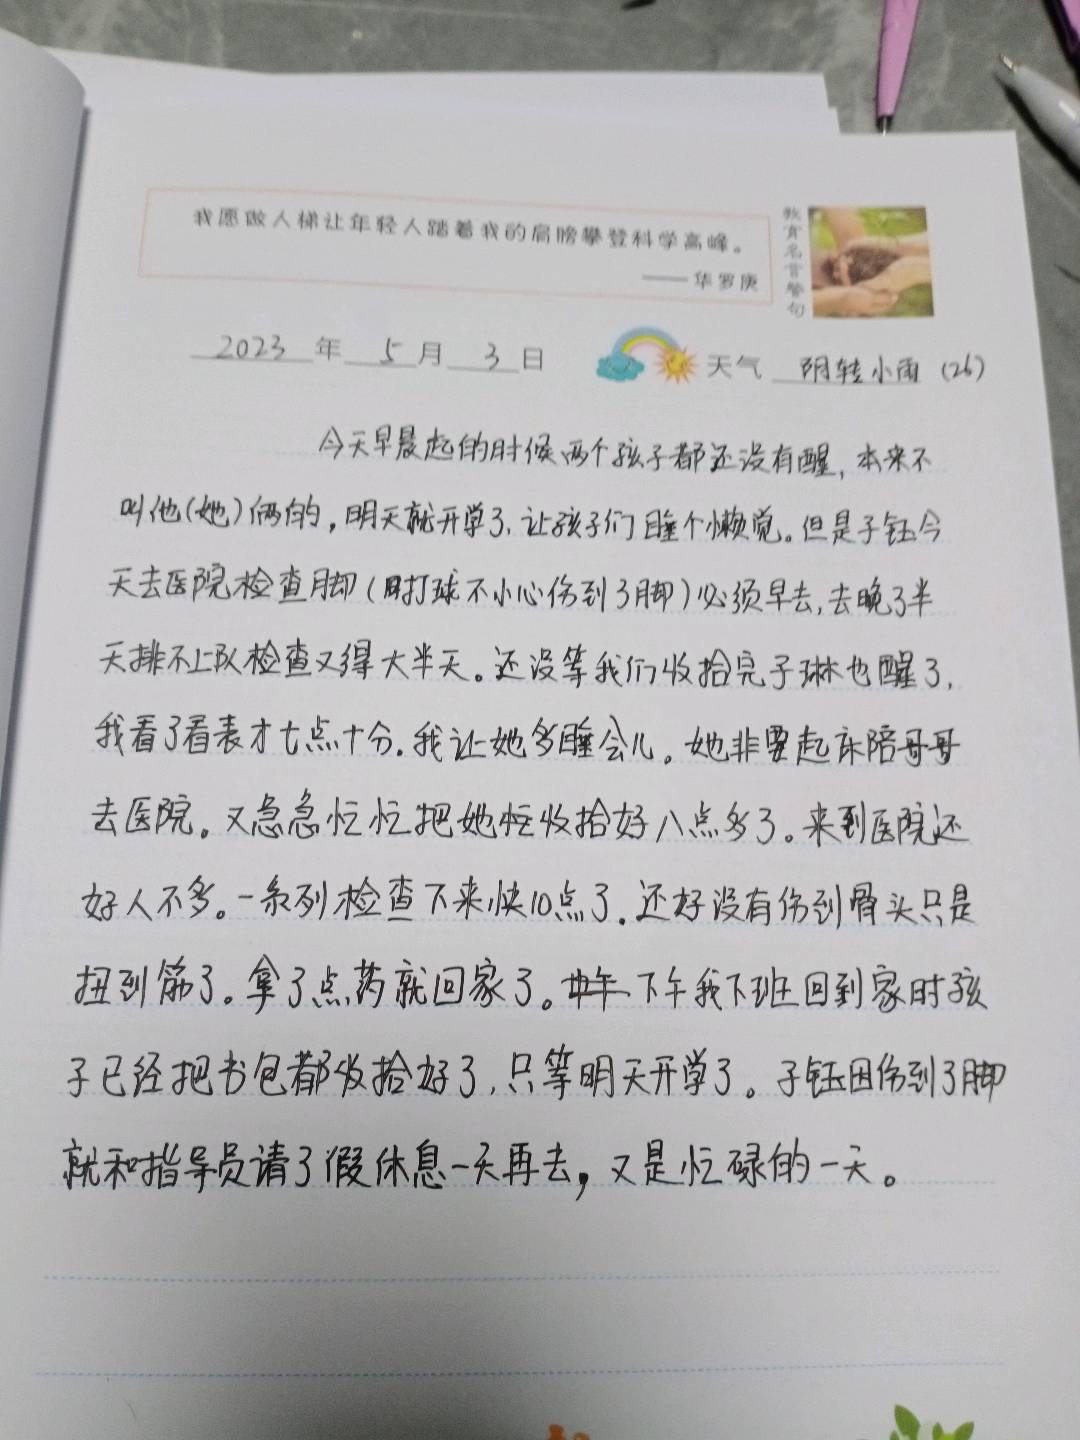 我愿做人梯让年轻人踏着我的肩膀攀登科学高峰。
——华罗庚
教育名言警句
2023年5月3日 天气 阴转小雨(26)
今天早晨起的时候两个孩子都还没有醒,本来不
叫他(她)俩的,明天就开学了,让孩子们睡个懒觉。但是子钰今
天去医院检查脚(打球不小心伤到了脚)必须早去,去晚了半
天排不上队检查又得大半天。还没等我们收拾完子琳也醒了,
我看了看表才七点十分。我让她多睡会儿。她非要起床陪哥哥
去医院。又急急忙忙把她忙收拾好八点多了。来到医院还
好人不多。一系列检查下来快10点了。还好没有伤到骨头只是
扭到筋了。拿了点药就回家了。下午我下班回到家时孩
子已经把书包都收拾好了,只等明天开学了。子钰因伤到了脚
就和指导员请了假休息一天再去,又是忙碌的一天。